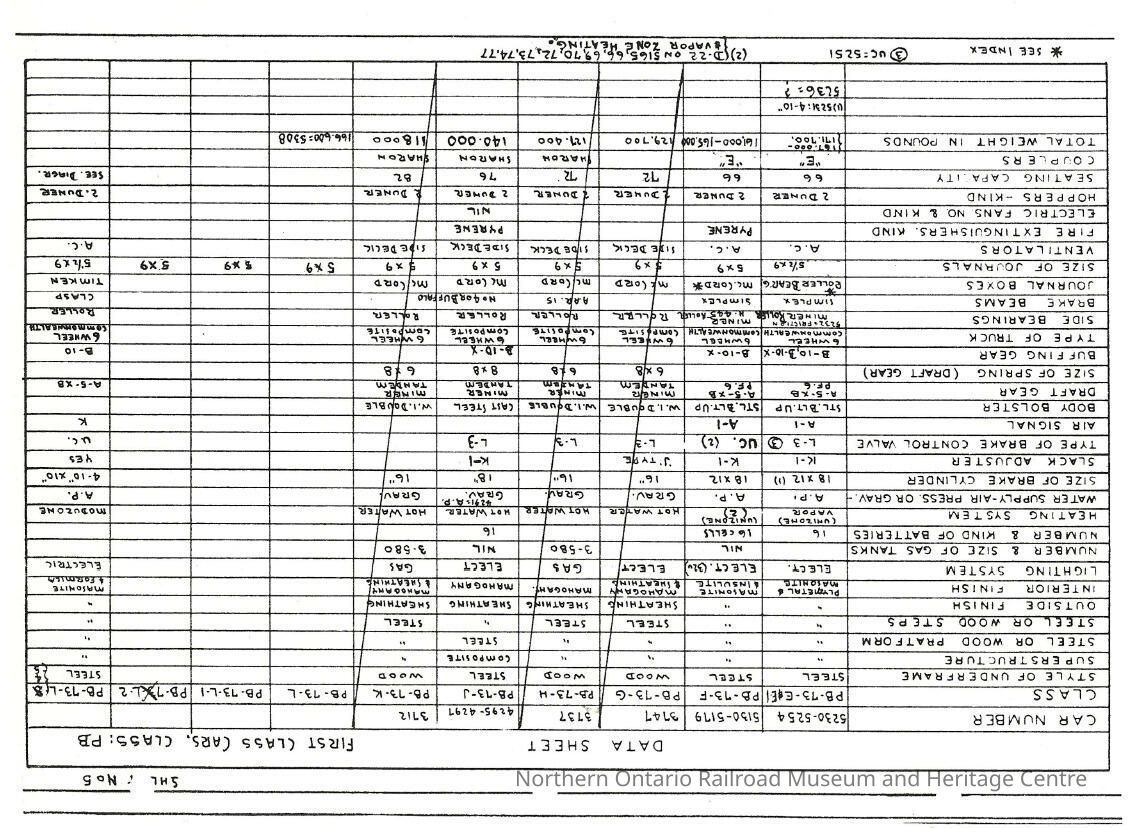 SHT. No 5
DATA SHEET FIRST CLASS CARS, CLASS: PB
CAR NUMBER 5230-5254 5150-5179 3747 3737 4295-4297 3712
CLASS PB-73-E&E1 PB-73-F PB-73-G PB-73-H PB-73-J PB-73-K PB-73-L PB-73-L-1 PB-73-L-2 PB-73-L-
STYLE OF UNDERFRAME STEEL STEEL WOOD WOOD STEEL WOOD STEEL
SUPERSTRUCTURE " " " " COMPOSITE " "
STEEL OR WOOD PRATFORM " " " " STEEL " "
STEEL OR WOOD STEPS " " STEEL STEEL " STEEL "
OUTSIDE FINISH " " SHEATHING SHEATHING SHEATHING SHEATHING "
INTERIOR FINISH PLYMETAL & MASONITE MASONITE & INSULITE MAHOGANY & SHEATHING MAHOGANY. MAHOGANY MAHOGANY & SHEATHING MASONITE & FORMICA
LIGHTING SYSTEM ELECT. ELECT. (32V) ELECT GAS ELECT GAS ELECTRIC
NUMBER & SIZE OF GAS TANKS NIL 3-580 NIL 3-580
NUMBER & KIND OF BATTERIES 16 16 CELLS 16
HEATING SYSTEM VAPOR (UNIZONE) (2) (UNIZONE) HOT WATER HOT WATER HOT WATER HOT WATER MODUZONE
WATER SUPPLY-AIR PRESS. OR GRAV.- A.P. A.P. GRAV. GRAV. GRAV. 4291=A.P. GRAV. A.P.
SIZE OF BRAKE CYLINDER 18 X 12 (1) 18 X 12 16" 16" 18" 16" 4-10"X10"
SLACK ADJUSTER K-1 K-1 'J' TYPE K-1 YES
TYPE OF BRAKE CONTROL VALVE L-3 ③ UC. (2) L-3 L-3 L-3 U.C.
AIR SIGNAL A-1 A-1 K
BODY BOLSTER STL. BLT. UP STL. BLT. UP W.I. DOUBLE W.I. DOUBLE CAST STEEL W.I. DOUBLE
DRAFT GEAR A-5-XB P.F. 6 A-5-XB P.F. 6 MINER TANDEM MINER TANDEM MINER TANDEM MINER TANDEM A-5-XB
SIZE OF SPRING (DRAFT GEAR) 6 X 8 6 X 8 8 X 8 6 X 8
BUFFING GEAR B-10, B-10-X B-10-X B-10-X B-10
TYPE OF TRUCK 6 WHEEL COMMONWEALTH 6 WHEEL COMMONWEALTH 6 WHEEL COMPOSITE 6 WHEEL COMPOSITE 6 WHEEL COMPOSITE 6 WHEEL COMPOSITE 6 WHEEL COMMONWEALTH
SIDE BEARINGS 5232=FRICTION MINER ROLLER MINER ROLLER ROLLER ROLLER ROLLER ROLLER
BRAKE BEAMS SIMPLEX SIMPLEX A.A.R. 15 No 4 OR BUFFALO CLASP
JOURNAL BOXES ROLLER BEAR'G * McCORD * McCORD McCORD McCORD McCORD TIMKEN
SIZE OF JOURNALS 5½X9 5 X 9 5 X 9 5 X 9 5 X 9 5 X 9 5 X 9 5 X 9 5 X 9 5½X9
VENTILATORS A.C. A.C. SIDE DECK SIDE DECK SIDE DECK SIDE DECK A.C.
FIRE EXTINGUISHERS. KIND PYRENE PYRENE
ELECTRIC FANS NO. & KIND NIL
HOPPERS -KIND 2 DUNER 2 DUNER 2 DUNER 2 DUNER 2 DUNER 2 DUNER 2. DUNER
SEATING CAPACITY 66 66 72 72 76 82 SEE. DIAGR.
COUPLERS "E" "E" SHARON SHARON SHARON
TOTAL WEIGHT IN POUNDS 167.000- 171.700. 161,000-165,000 129,700 127.400 140.000 118.000 166.600=5308
(1) 5231:4-10"
5236=?
* SEE INDEX ③ UC=5251 (2) D-22 ON 5165,66,69,70,72,73,74,77 & VAPOR ZONE HEATING.
Northern Ontario Railroad Museum and Heritage Centre